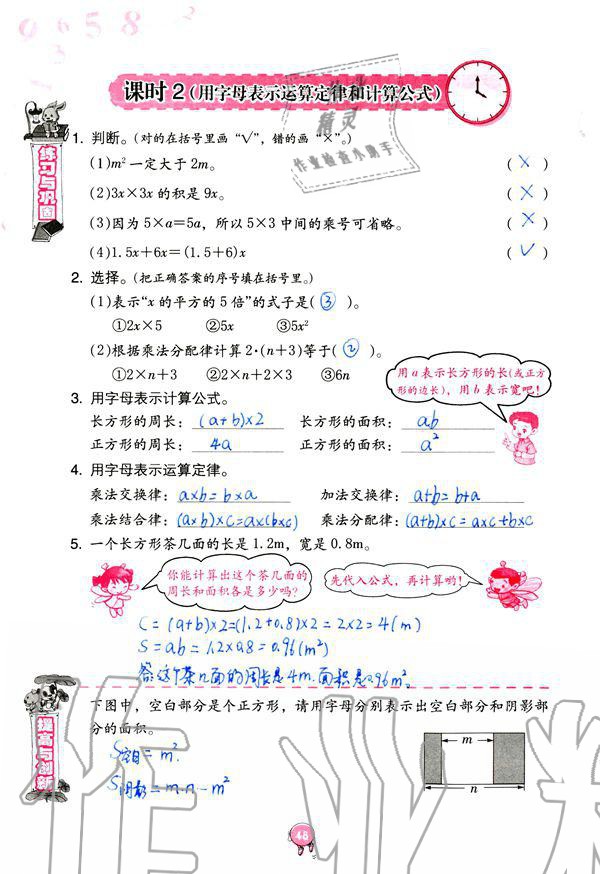 9 6 5 8 2
3
1
课时2(用字母表示运算定律和计算公式)
精灵
作业检查小助手
练习与巩固
1. 判断。(对的在括号里画“√”,错的画“×”。)
(1)m²一定大于2m。 ( × )
(2)3x×3x的积是9x。 ( × )
(3)因为5×a=5a,所以5×3中间的乘号可省略。 ( × )
(4)1.5x+6x=(1.5+6)x ( √ )
2. 选择。(把正确答案的序号填在括号里。)
(1)表示“x的平方的5倍”的式子是( ③ )。
①2x×5 ②5x ③5x²
(2)根据乘法分配律计算2·(n+3)等于( ② )。
①2×n+3 ②2×n+2×3 ③6n
用a表示长方形的长(或正方
形的边长),用b表示宽吧!
3. 用字母表示计算公式。
长方形的周长:(a+b)×2 长方形的面积:ab
正方形的周长:4a 正方形的面积:a²
4. 用字母表示运算定律。
乘法交换律:a×b=b×a 加法交换律:a+b=b+a
乘法结合律:(a×b)×c=a×(b×c) 乘法分配律:(a+b)×c=a×c+b×c
5. 一个长方形茶几面的长是1.2m,宽是0.8m。
你能计算出这个茶几面的
周长和面积各是多少吗?
先代入公式,再计算哟!
C=(a+b)×2=(1.2+0.8)×2=2×2=4(m)
S=ab=1.2×0.8=0.96(m²)
答:这个茶几面的周长是4m.面积是0.96m².
提高与创新
下图中,空白部分是个正方形,请用字母分别表示出空白部分和阴影部
分的面积。
S空白=m².
S阴影=m·n-m²
m
n
作业
48